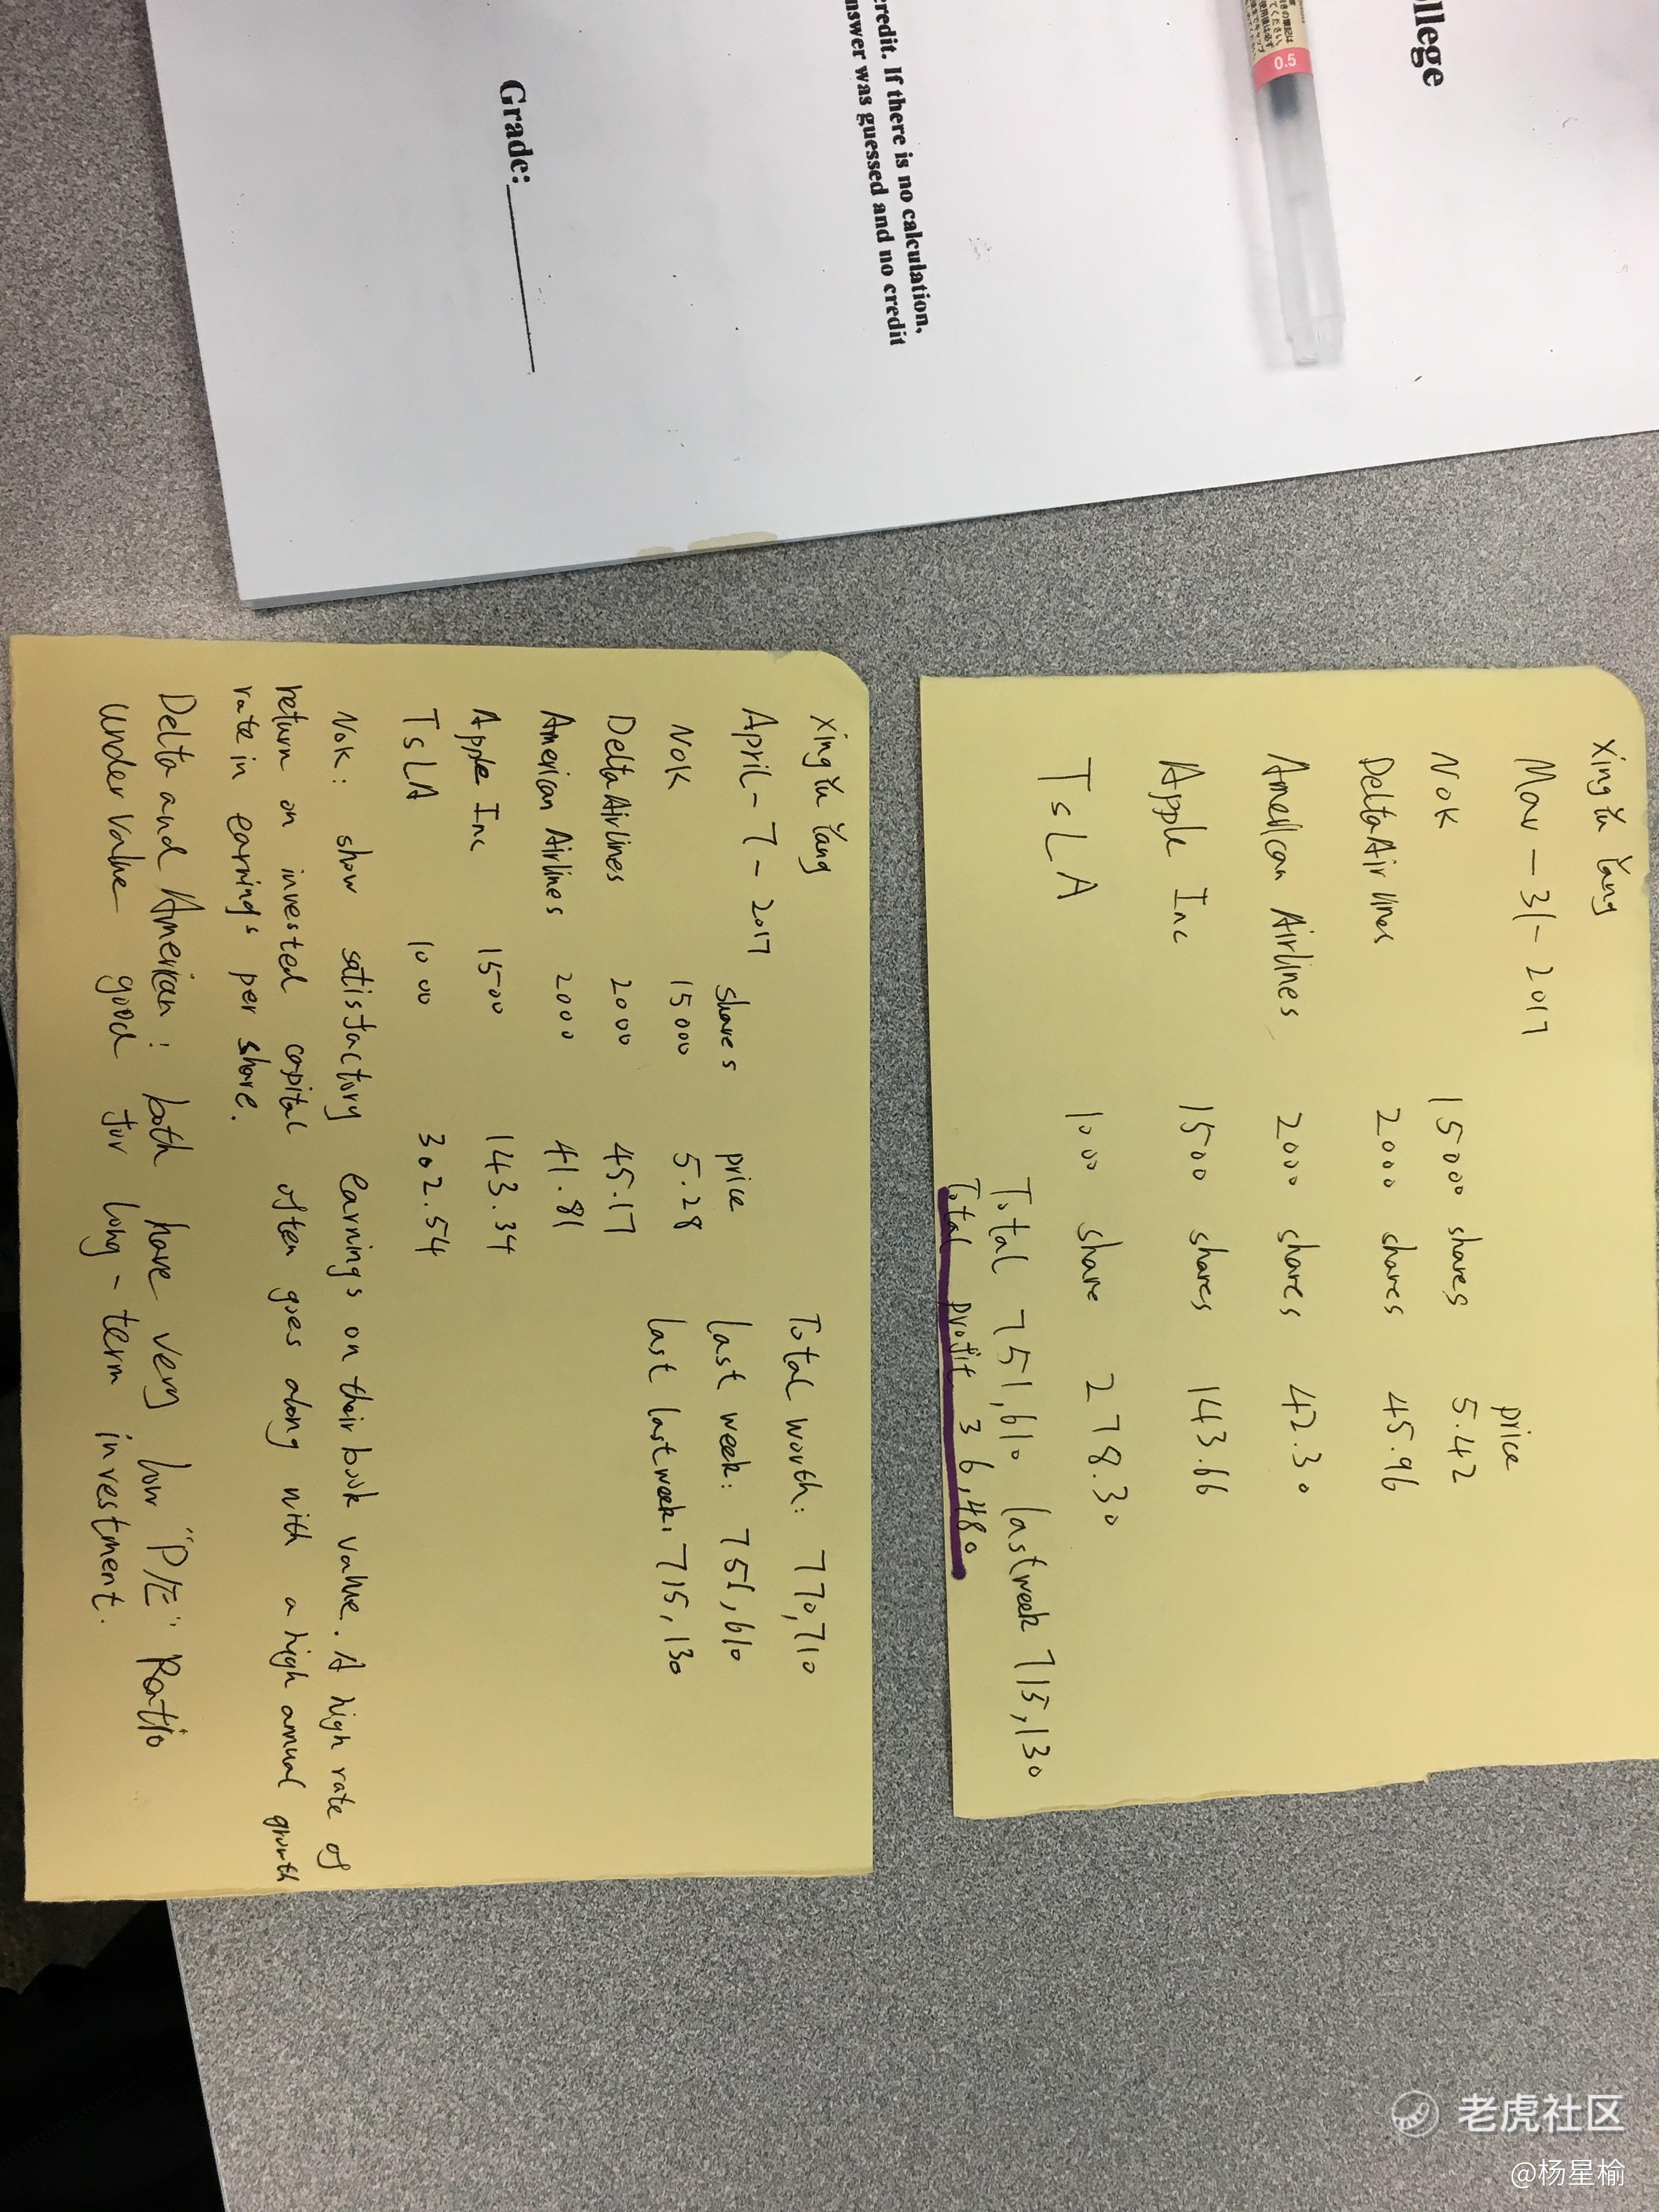 llege
redit. If there is no calculation,
nswer was guessed and no credit
Grade:
0.5
Xing Yu Yang
Mar - 31 - 2017
price
Nok 15000 shares 5.42
Delta Air lines 2000 shares 45.96
American Airlines 2000 shares 42.30
Apple Inc 1500 shares 143.66
TSLA 1000 share 278.30
Total 751,610 last week 715,130
Total profit 36,480
Xing Yu Yang
April - 7 - 2017 shares price
Nok 15000 5.28
Delta Airlines 2000 45.17
American Airlines 2000 41.81
Apple Inc 1500 143.34
TSLA 1000 302.54
Total worth: 770,710
last week: 751,610
last last week: 715,130
Nok: show satisfactory earnings on their book value. A high rate of
return on invested capital often goes along with a high annual growth
rate in earnings per share.
Delta and American: both have very low "P/E" Ratio
under value good for long - term investment.
老虎社区
@杨星榆